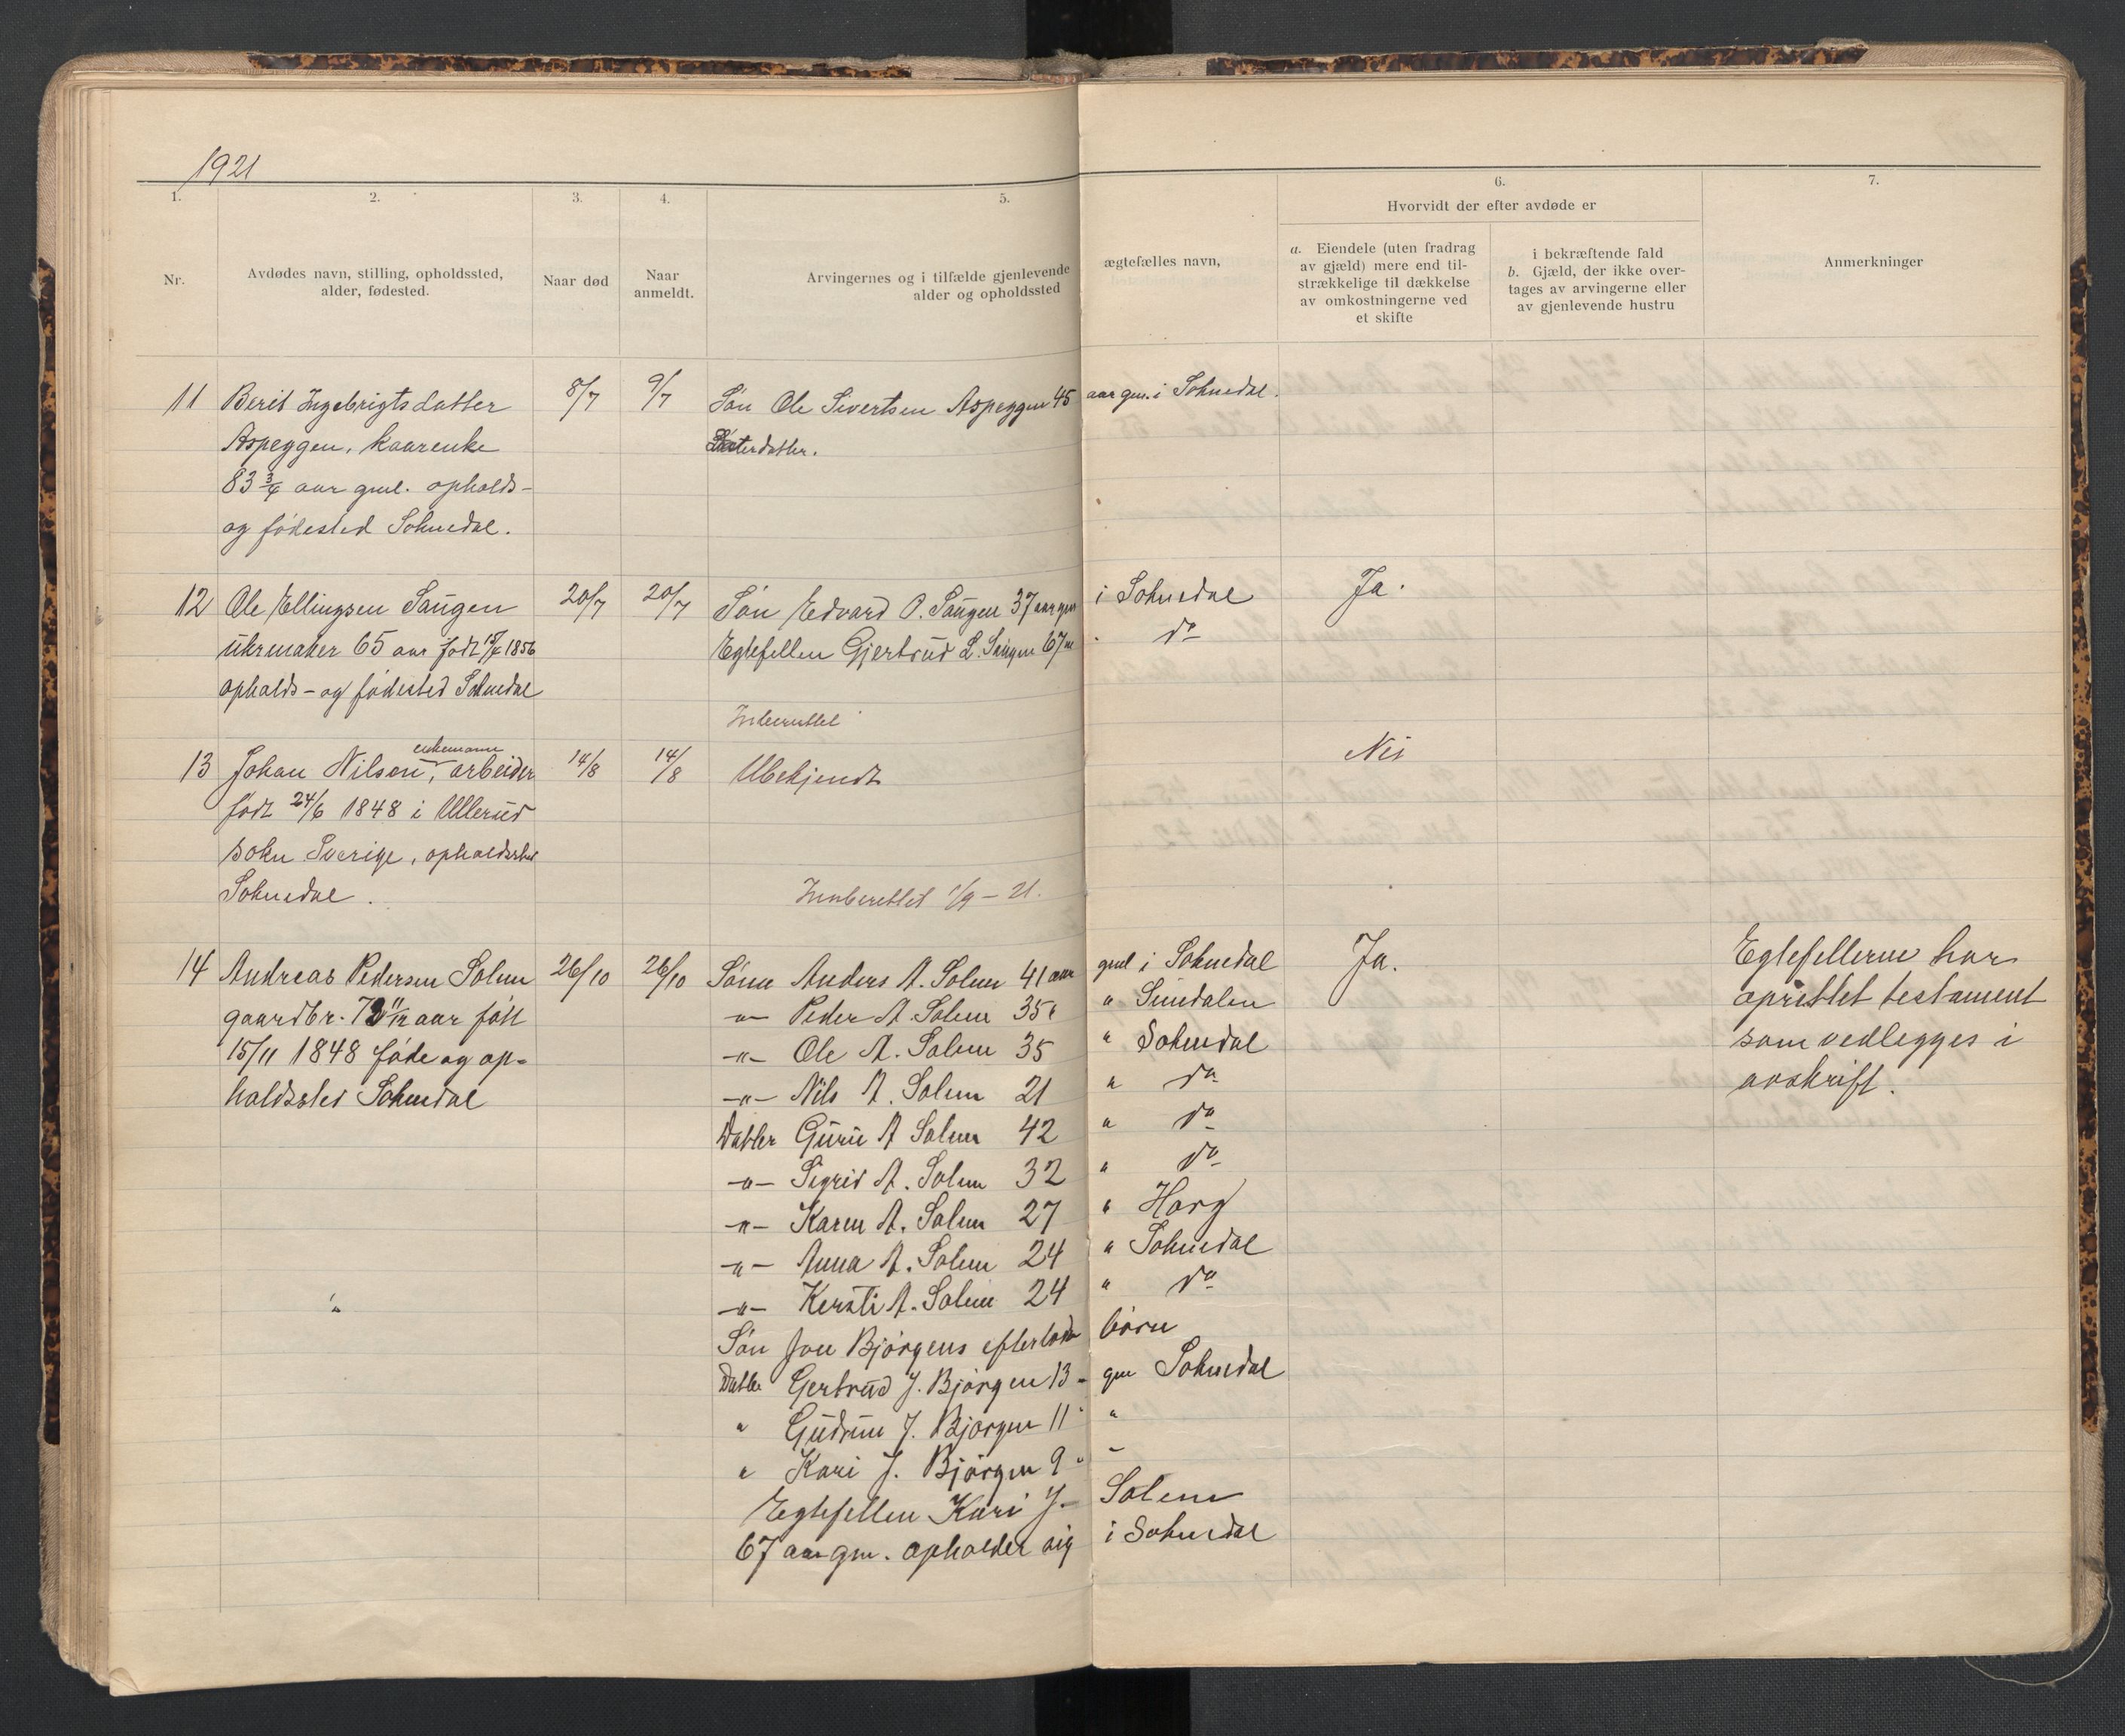 1921
1.
2.
3.
4.
5.
6.
7.
Hvorvidt der efter avdøde er
Nr.
Avdødes navn, stilling, opholdssted,
alder, fødested.
Naar død
Naar
anmeldt.
Arvingernes og i tilfælde gjenlevende ægtefælles navn,
alder og opholdssted
a. Eiendele (uten fradrag
av gjæld) mere end til-
strækkelige til dækkelse
av omkostningerne ved
et skifte
i bekræftende fald
b. Gjæld, der ikke over-
tages av arvingerne eller
av gjenlevende hustru
Anmerkninger
11 Berit Ingebrigtsdatter 8/7 9/7 Søn Ole Sivertsen Aspeggen 45 aar gm. i Soknedal.
Aspeggen, kaarenke
83 3/4 aar gml. opholds-
og fødested Soknedal.
12 Ole Ellingsen Saugen 20/7 20/7 Søn Edvard O. Saugen 37 aar gm i Soknedal Ja.
uhrmaker 65 aar født 1856 Egtefellen Gjertrud L. Saugen 67 " do
opholds- og fødested Soknedal
Inberettet
13 Johan Nilson, enkemann arbeider 14/8 14/8 Ubekjendt Nei
født 24/6 1848 i Ullerud
sokn Sverige, opholdssted
Soknedal.
Innberettet 1/9 - 21.
14 Andreas Pedersen Solem 26/10 26/10 Sønn Anders A. Solem 41 aar gml i Soknedal Ja. Egtefellerne har
gaardbr. 72 11/12 aar født -"- Peder A. Solem 35 " " Sundalen oprettet testament
15/11 1848 føde og op- -"- Ole A. Solem 35 " Soknedal som vedlegges i
holdssted Soknedal -"- Nils A. Solem 21 " do avskrift.
Datter Guru A Solem 42 " do
-"- Sigrid A. Solem 32 " do
-"- Karen A. Solem 27 " Horg
-"- Anna A. Solem 24 " Soknedal
-"- Kersti A. Solem 24 " do
Søn Jon Bjørgens efterladte børn
Datter Gertrud J. Bjørgen 13 - gm Soknedal
" Gudrun J. Bjørgen 11 " "
" Kari J. Bjørgen 9 " -
Egtefellen Kari J. Solem
67 aar gm. opholder sig i Soknedal